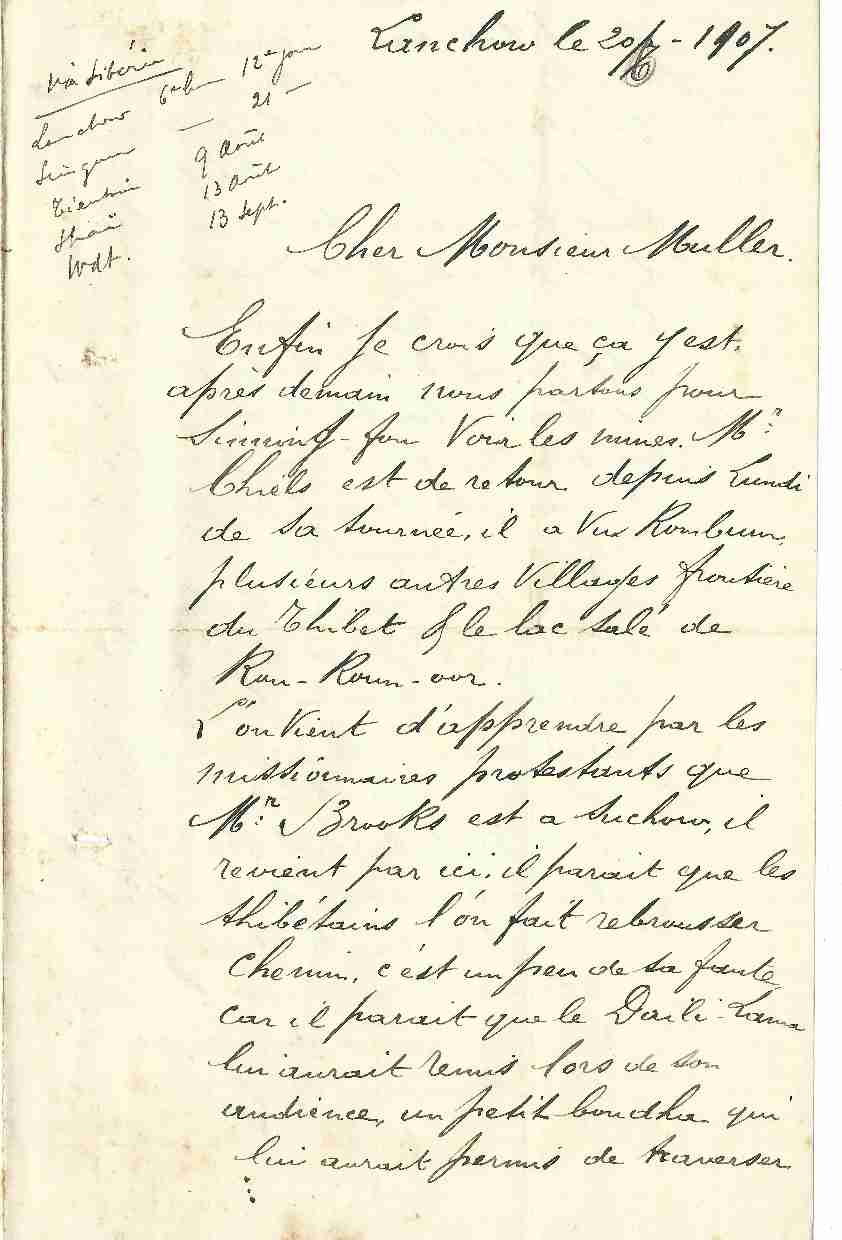 Lanchow le 20/6 - 1907.
Via Sibérie
Lanchow 12e jour
Singan — 21 —
Tientsin 9 Août
13 Août
Wdt. 13 Sept.
Cher Monsieur Muller.
Enfin je crois que ça y est.
après demain nous partons pour
Sinning-fou Voir les mines. Mr:
Chiels est de retour depuis Lundi
de sa tournée, il a Vu Rombum,
plusieurs autres Villages frontière
du Thibet & le lac salé de
Kou-Koun-oor.
L'on Vient d'apprendre par les
missionnaires protestants que
Mr: Brooks est a Suchow, il
revient par ici, il parait que les
thibétains l'ón fait rebrousser
Chemin, c'est un peu de sa faute
car il parait que le Daili-Lama
lui aurait remis lors de son
audience, un petit boudha qui
lui aurait permis de traverser